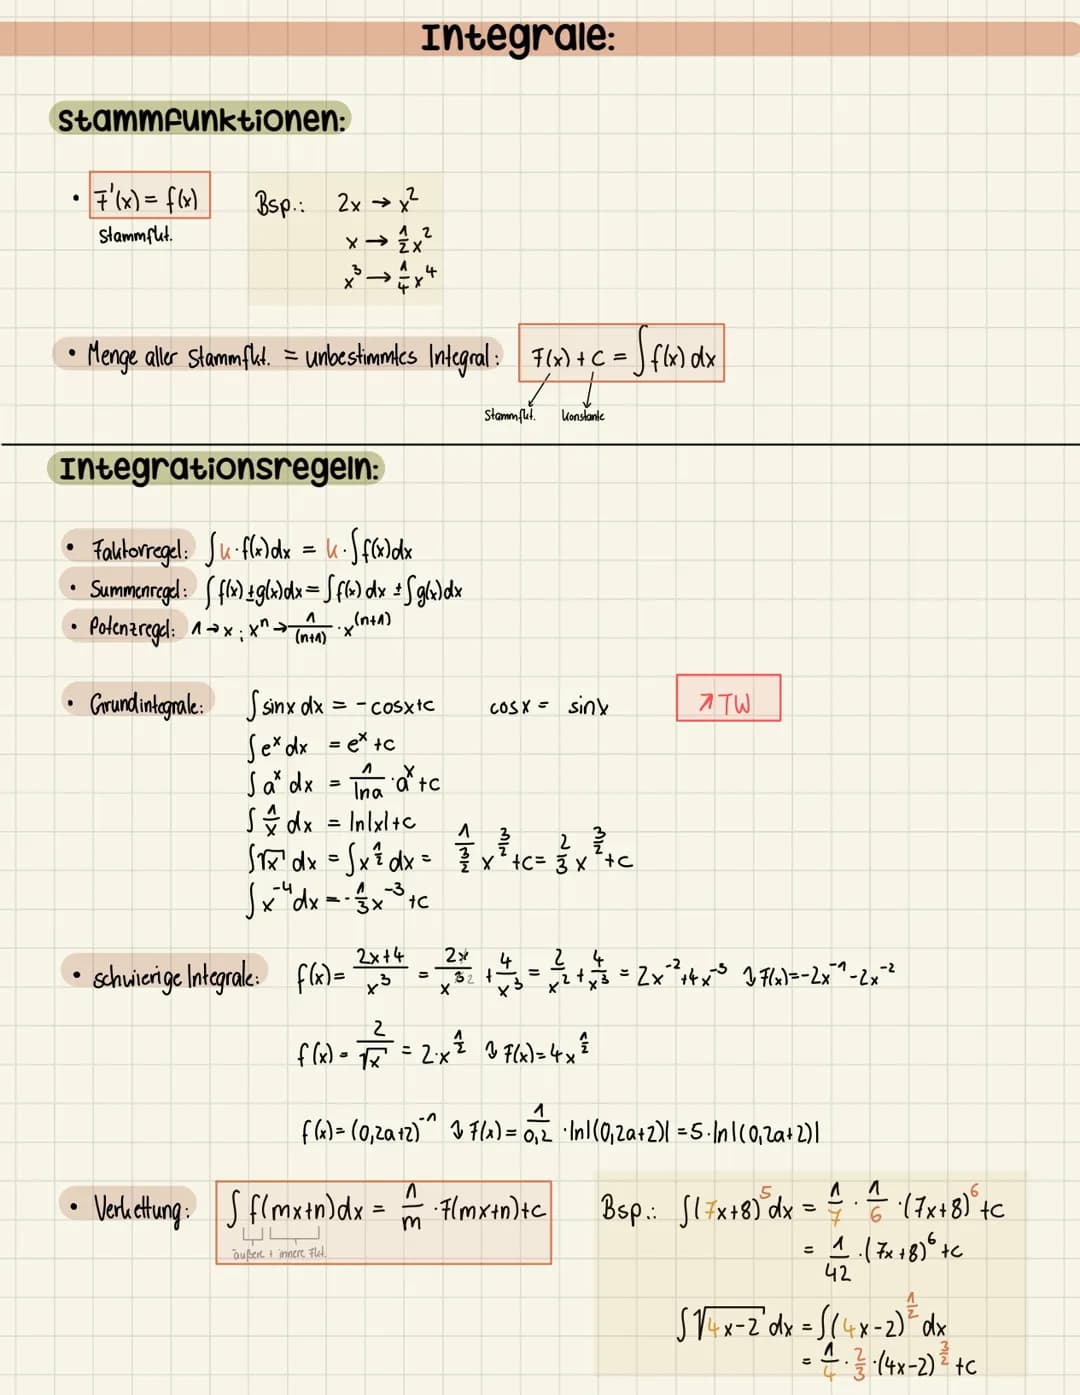 Integrale:
Stammfunktionen:
• F'(x) = f(x)
Stammfkt.
Bsp.: 2x → x²
x → 1/2 x²
x³ → 1/4 x⁴
• Menge aller Stammfkt. = unbestimmtes Integral: F(x) + C = ∫ f(x) dx
Stammfkt. Konstante
Integrationsregeln:
• Faktorregel: ∫ k · f(x) dx = k · ∫ f(x) dx
• Summenregel: ∫ f(x) ± g(x) dx = ∫ f(x) dx ± ∫ g(x) dx
• Potenzregel: 1 → x ; xⁿ → 1/(n+1) · x^(n+1)
• Grundintegrale: ∫ sinx dx = -cosx+c cosx = sinx ↗ TW
∫ eˣ dx = eˣ +c
∫ aˣ dx = 1/lna · aˣ +c
∫ 1/x dx = ln|x|+c
∫ √x dx = ∫ x^(1/2) dx = 1/(3/2) x^(3/2) +c = 2/3 x^(3/2) +c
∫ x⁻⁴ dx = -1/3 x⁻³ +c
• schwierige Integrale: f(x) = (2x+4)/x³ = 2x/x³ ² + 4/x³ = 2/x² + 4/x³ = 2x⁻² +4x⁻³ ↷ F(x)=-2x⁻¹ -2x⁻²
f(x) = 2/√x = 2·x^(1/2) ↷ F(x)=4x^(1/2)
f(x) = (0,2a+2)⁻¹ ↷ F(x) = 1/0,2 · ln|(0,2a+2)| = 5·ln|(0,2a+2)|
• Verkettung: ∫ f(mx+n) dx = 1/m · F(mx+n)+c
äußere + innere Fkt.
Bsp.: ∫ (7x+8)⁵ dx = 1/7 · 1/6 · (7x+8)⁶ +c
= 1/42 · (7x+8)⁶ +c
∫ √(4x-2) dx = ∫ (4x-2)^(1/2) dx
= 1/4 · 2/3 · (4x-2)^(3/2) +c